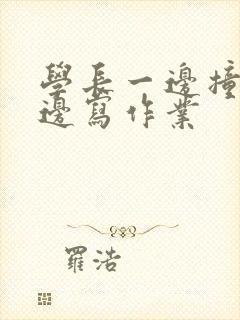 學長一邊撞
邊寫作業
羅浩